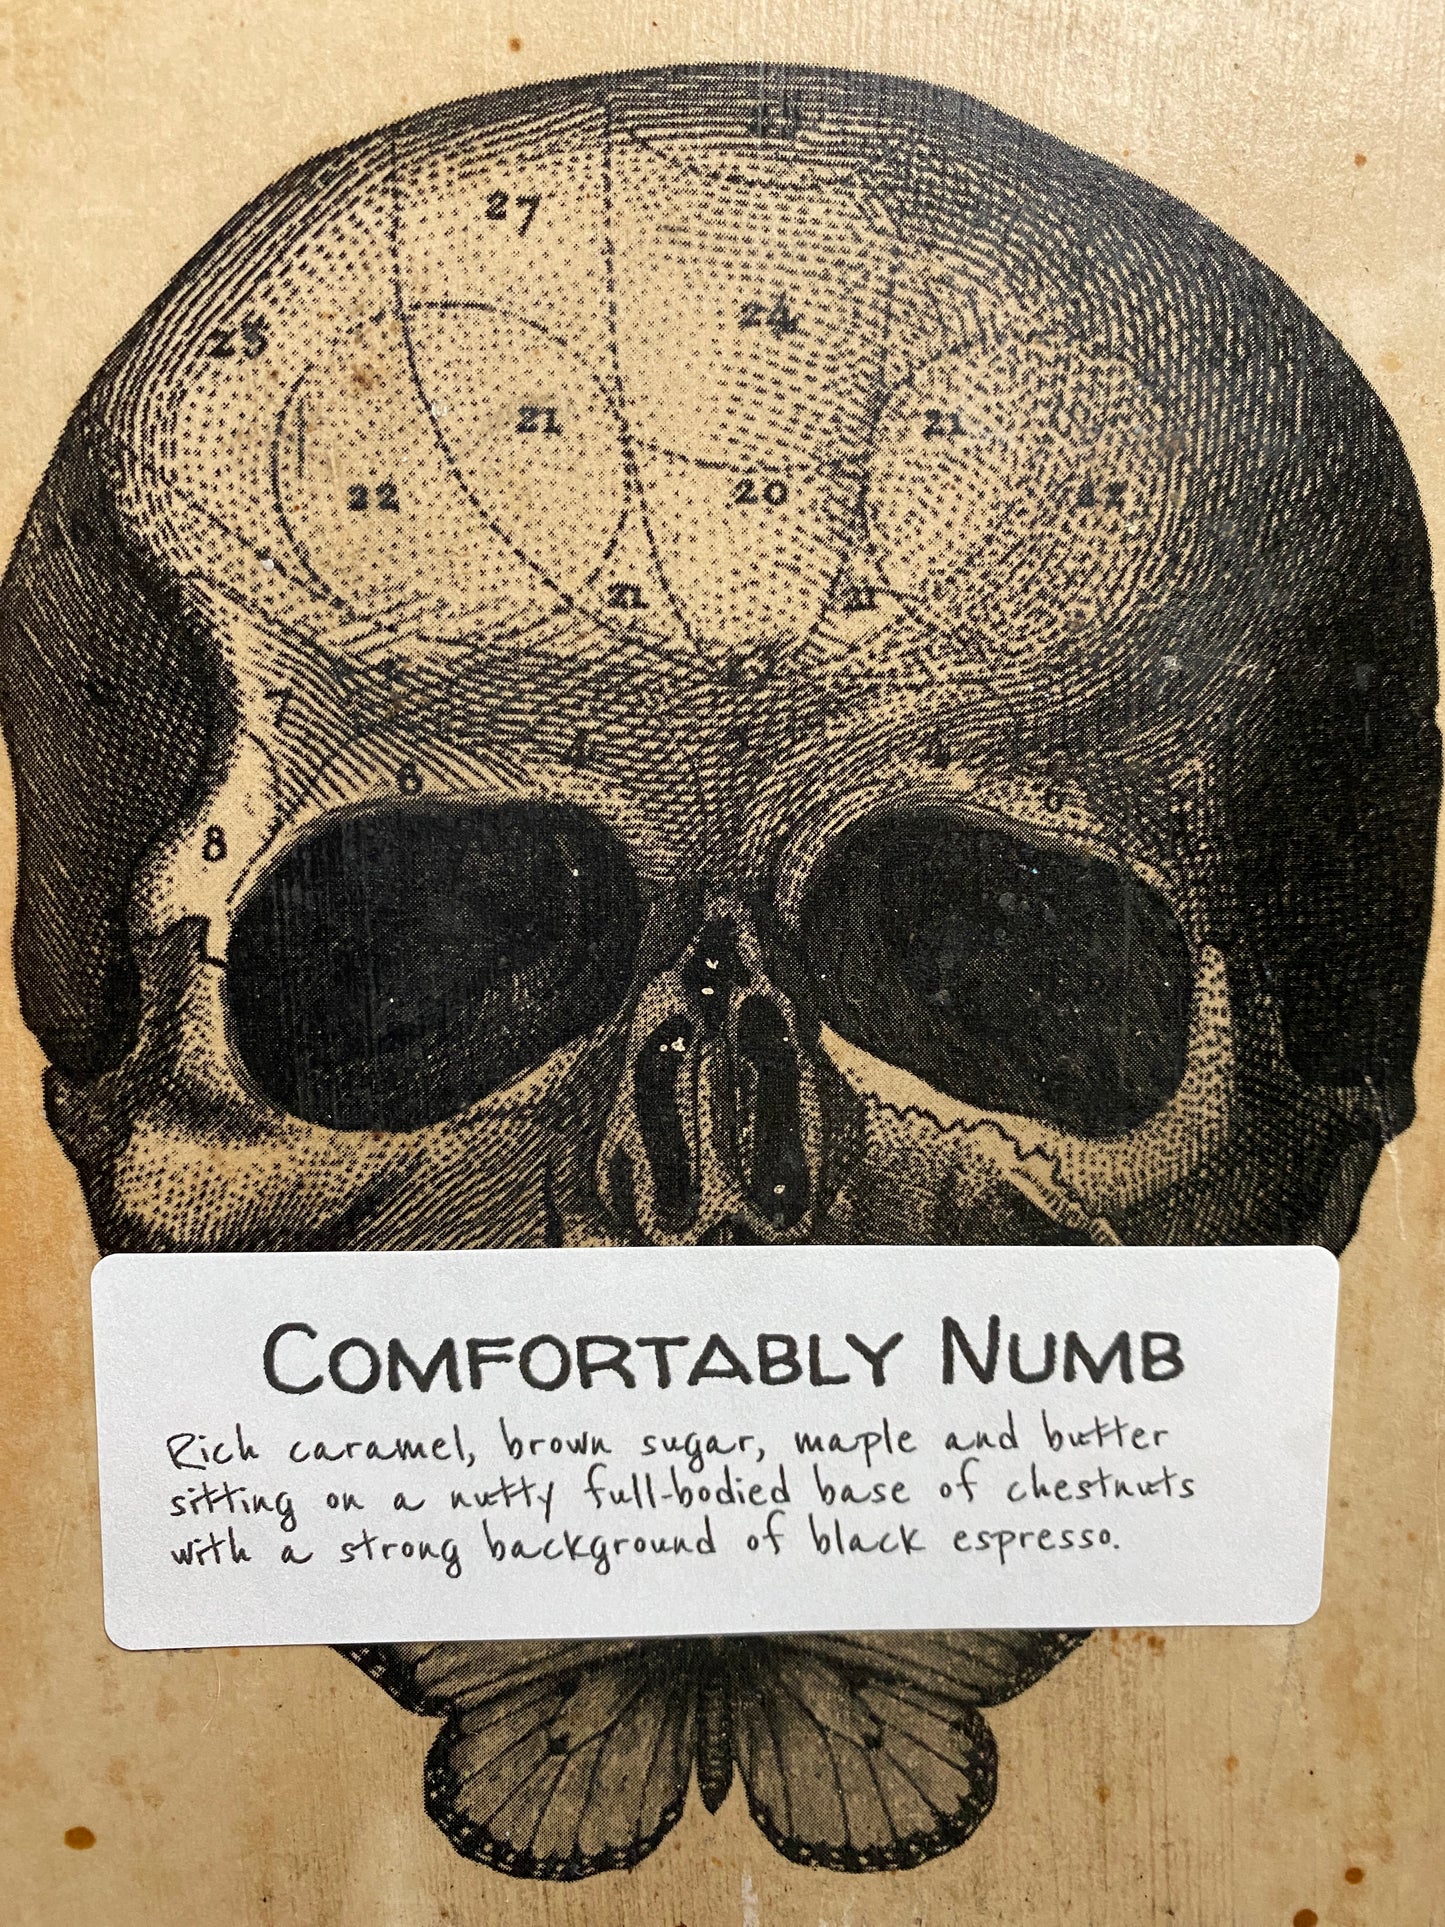 27
24
25
21
21
22
20
21
7
6
6
8
COMFORTABLY NUMB
Rich caramel, brown sugar, maple and butter
sitting on a nutty full-bodied base of chestnuts
with a strong background of black espresso.